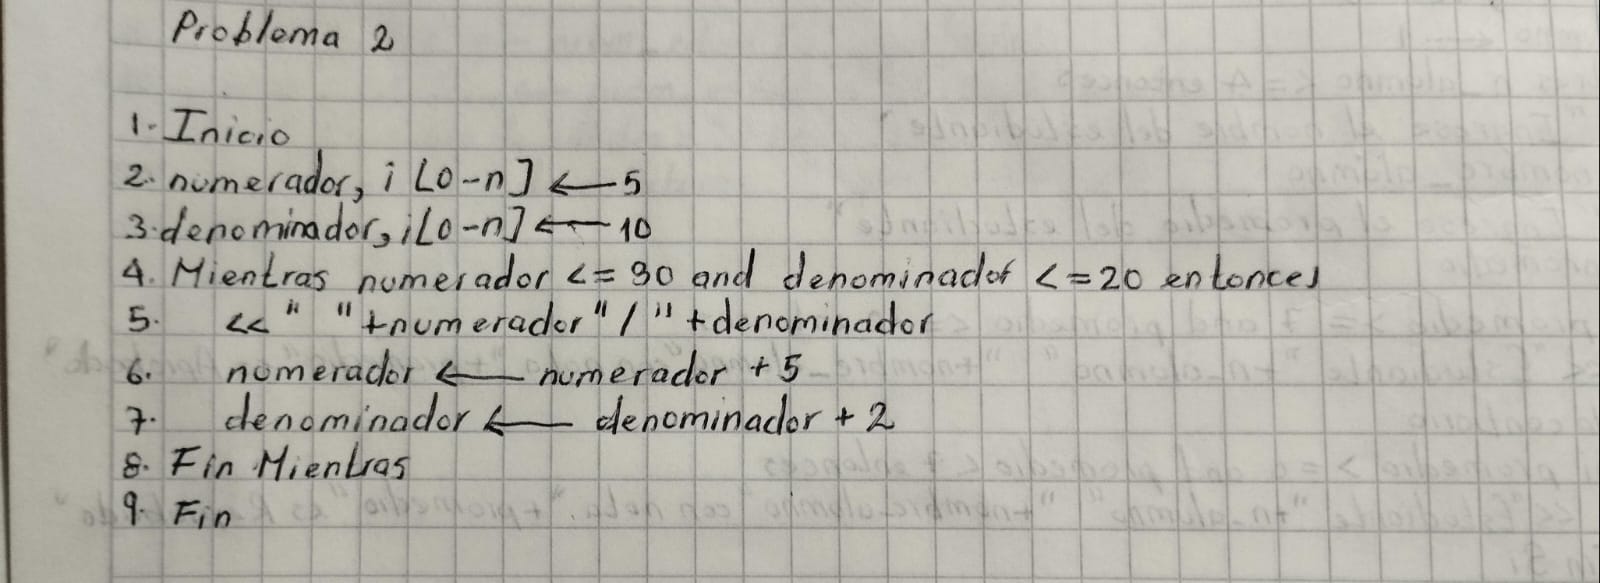 Problema 2
1. Inicio
2. numerador, i [0-n] ← 5
3. denominador, i [0-n] ← 10
4. Mientras numerador <= 30 and denominador <= 20 entonces
5. << " " + numerador "/" + denominador
6. numerador ← numerador + 5
7. denominador ← denominador + 2
8. Fin Mientras
9. Fin